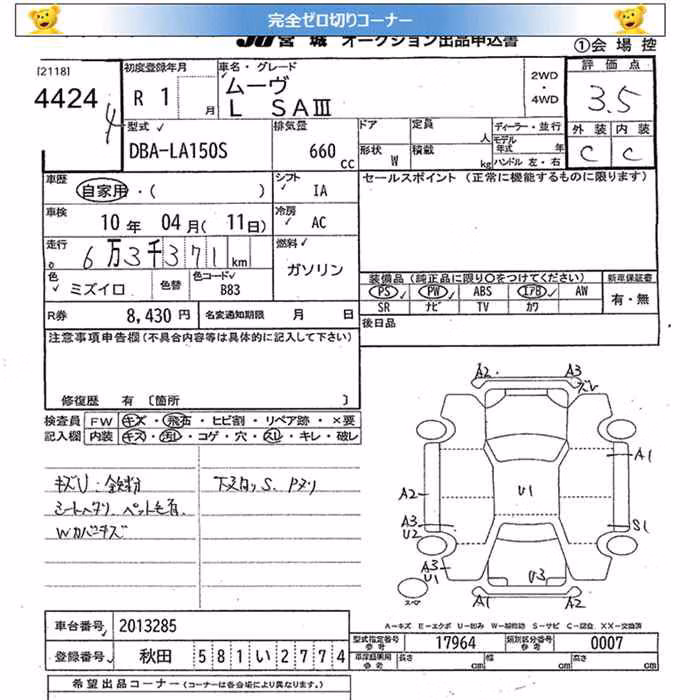 完全ゼロ切りコーナー
JU 宮 城 オークション出品申込書
①会 場 控
[2118]
4424
4
初度登録年月
R 1 月
車名・グレード
ムーヴ
L SAⅢ
2WD
・
4WD
評 価 点
3.5
型式 ✓
DBA-LA150S
排気量
660 cc
ドア
定員 人
ディーラー・並行
モデル年式 年
形状 W
積載 kg
ハンドル 左・右
外 装 内 装
C C
車歴
自家用・( )
シフト ✓
IA
セールスポイント (正常に機能するものに限ります)
車検
10 年 04 月( 11 日)
冷房 ✓
AC
走行
6万3千371 km
燃料 ✓
ガソリン
色 ✓
ミズイロ
色替
色コード✓
B83
装備品 (純正品に限り○をつけてください)
新車保証書
PS ✓ PW ✓ ABS エアB ✓ AW
有・無
SR ナビ TV カワ
R券 8,430 円
名変通知期限 月 日
後日品
注意事項申告欄(不具合内容等は具体的に記入して下さい)
修復歴 有 〔箇所 〕
検査員
記入欄
FW キズ・飛石・ヒビ割・リペア跡・×要
内装 キズ・汚れ・コゲ・穴・スレ・キレ・破レ
キズU:鉄粉
シートヘタリ、ペット毛有、
Wカバーキズ
下スロッS、Pヌリ
A2 A3
ズレ
A1
A2
U1
A3
U2
S1
A3
U1
U3
スペア
A1 A2
A−キズ E−エクボ U−凹み W−補修跡 S−サビ C−腐食 XX−交換済
車台番号 2013285
登録番号 秋田 581い2774
型式指定番号
参考
17964
類別区分番号
参考
0007
車庫証明用
参考
長さ cm 幅 cm 高さ cm
希望出品コーナー (コーナーは各会場により異なります。)